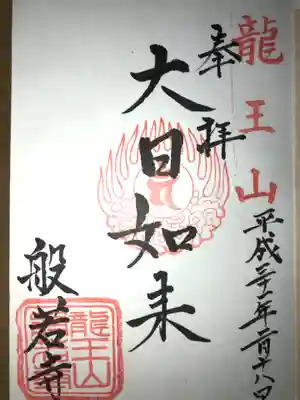 龍王山
奉拝
平成二十一年一月十八日
大日如来
般若寺
龍王山